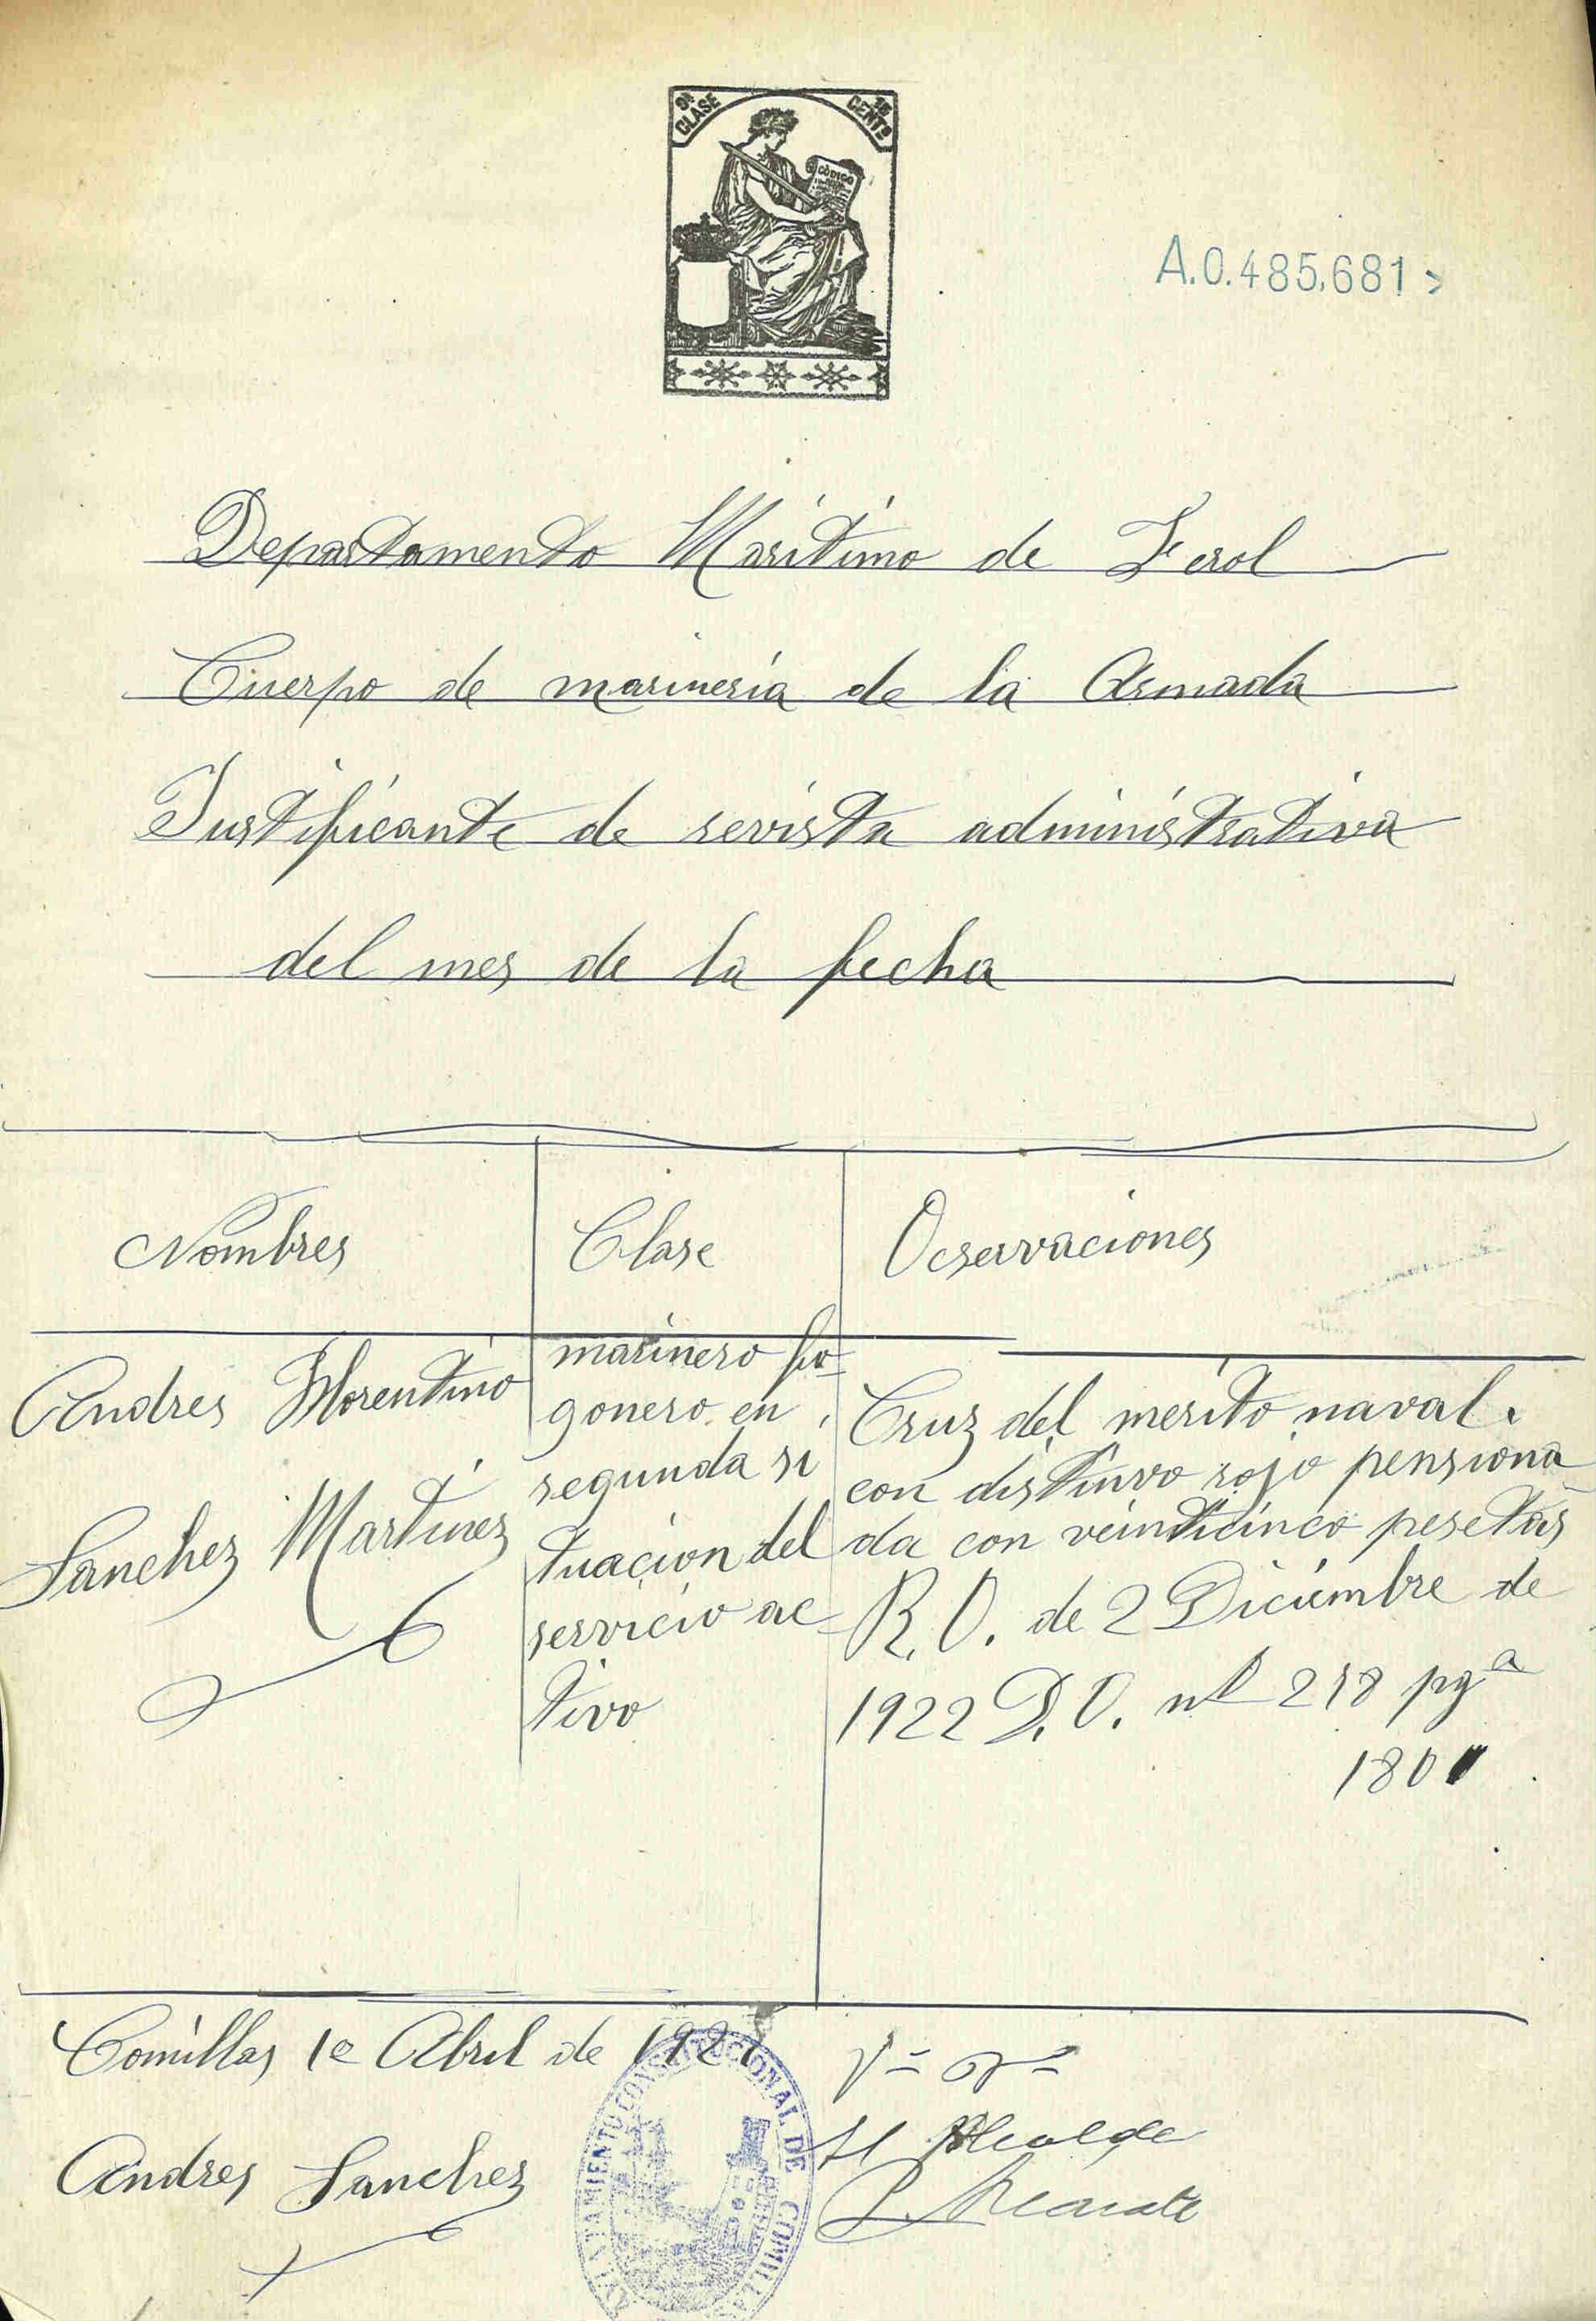 9ª CLASE
15 CENTS
CÓDIGO
A.0.485,681
Departamento Marítimo de Ferol
Cuerpo de marinería de la Armada
Justificante de revista administrativa
del mes de la fecha
Nombres Clase Ocservaciones
Andres Florentino
Sanchez Martinez
marinero fo-
gonero en
segunda si
tuacion del
servicio ac-
tivo
Cruz del merito naval.
con distinvo rojo pensiona
da con veinticinco pesetas
R. O. de 2 Diciembre de
1922 D. O. nº 278 pgª
1801
Comillas 1º Abril de
Andres Sanchez
Vº Bº
El Alcalde
AYUNTAMIENTO CONSTITUCIONAL DE COMILLAS